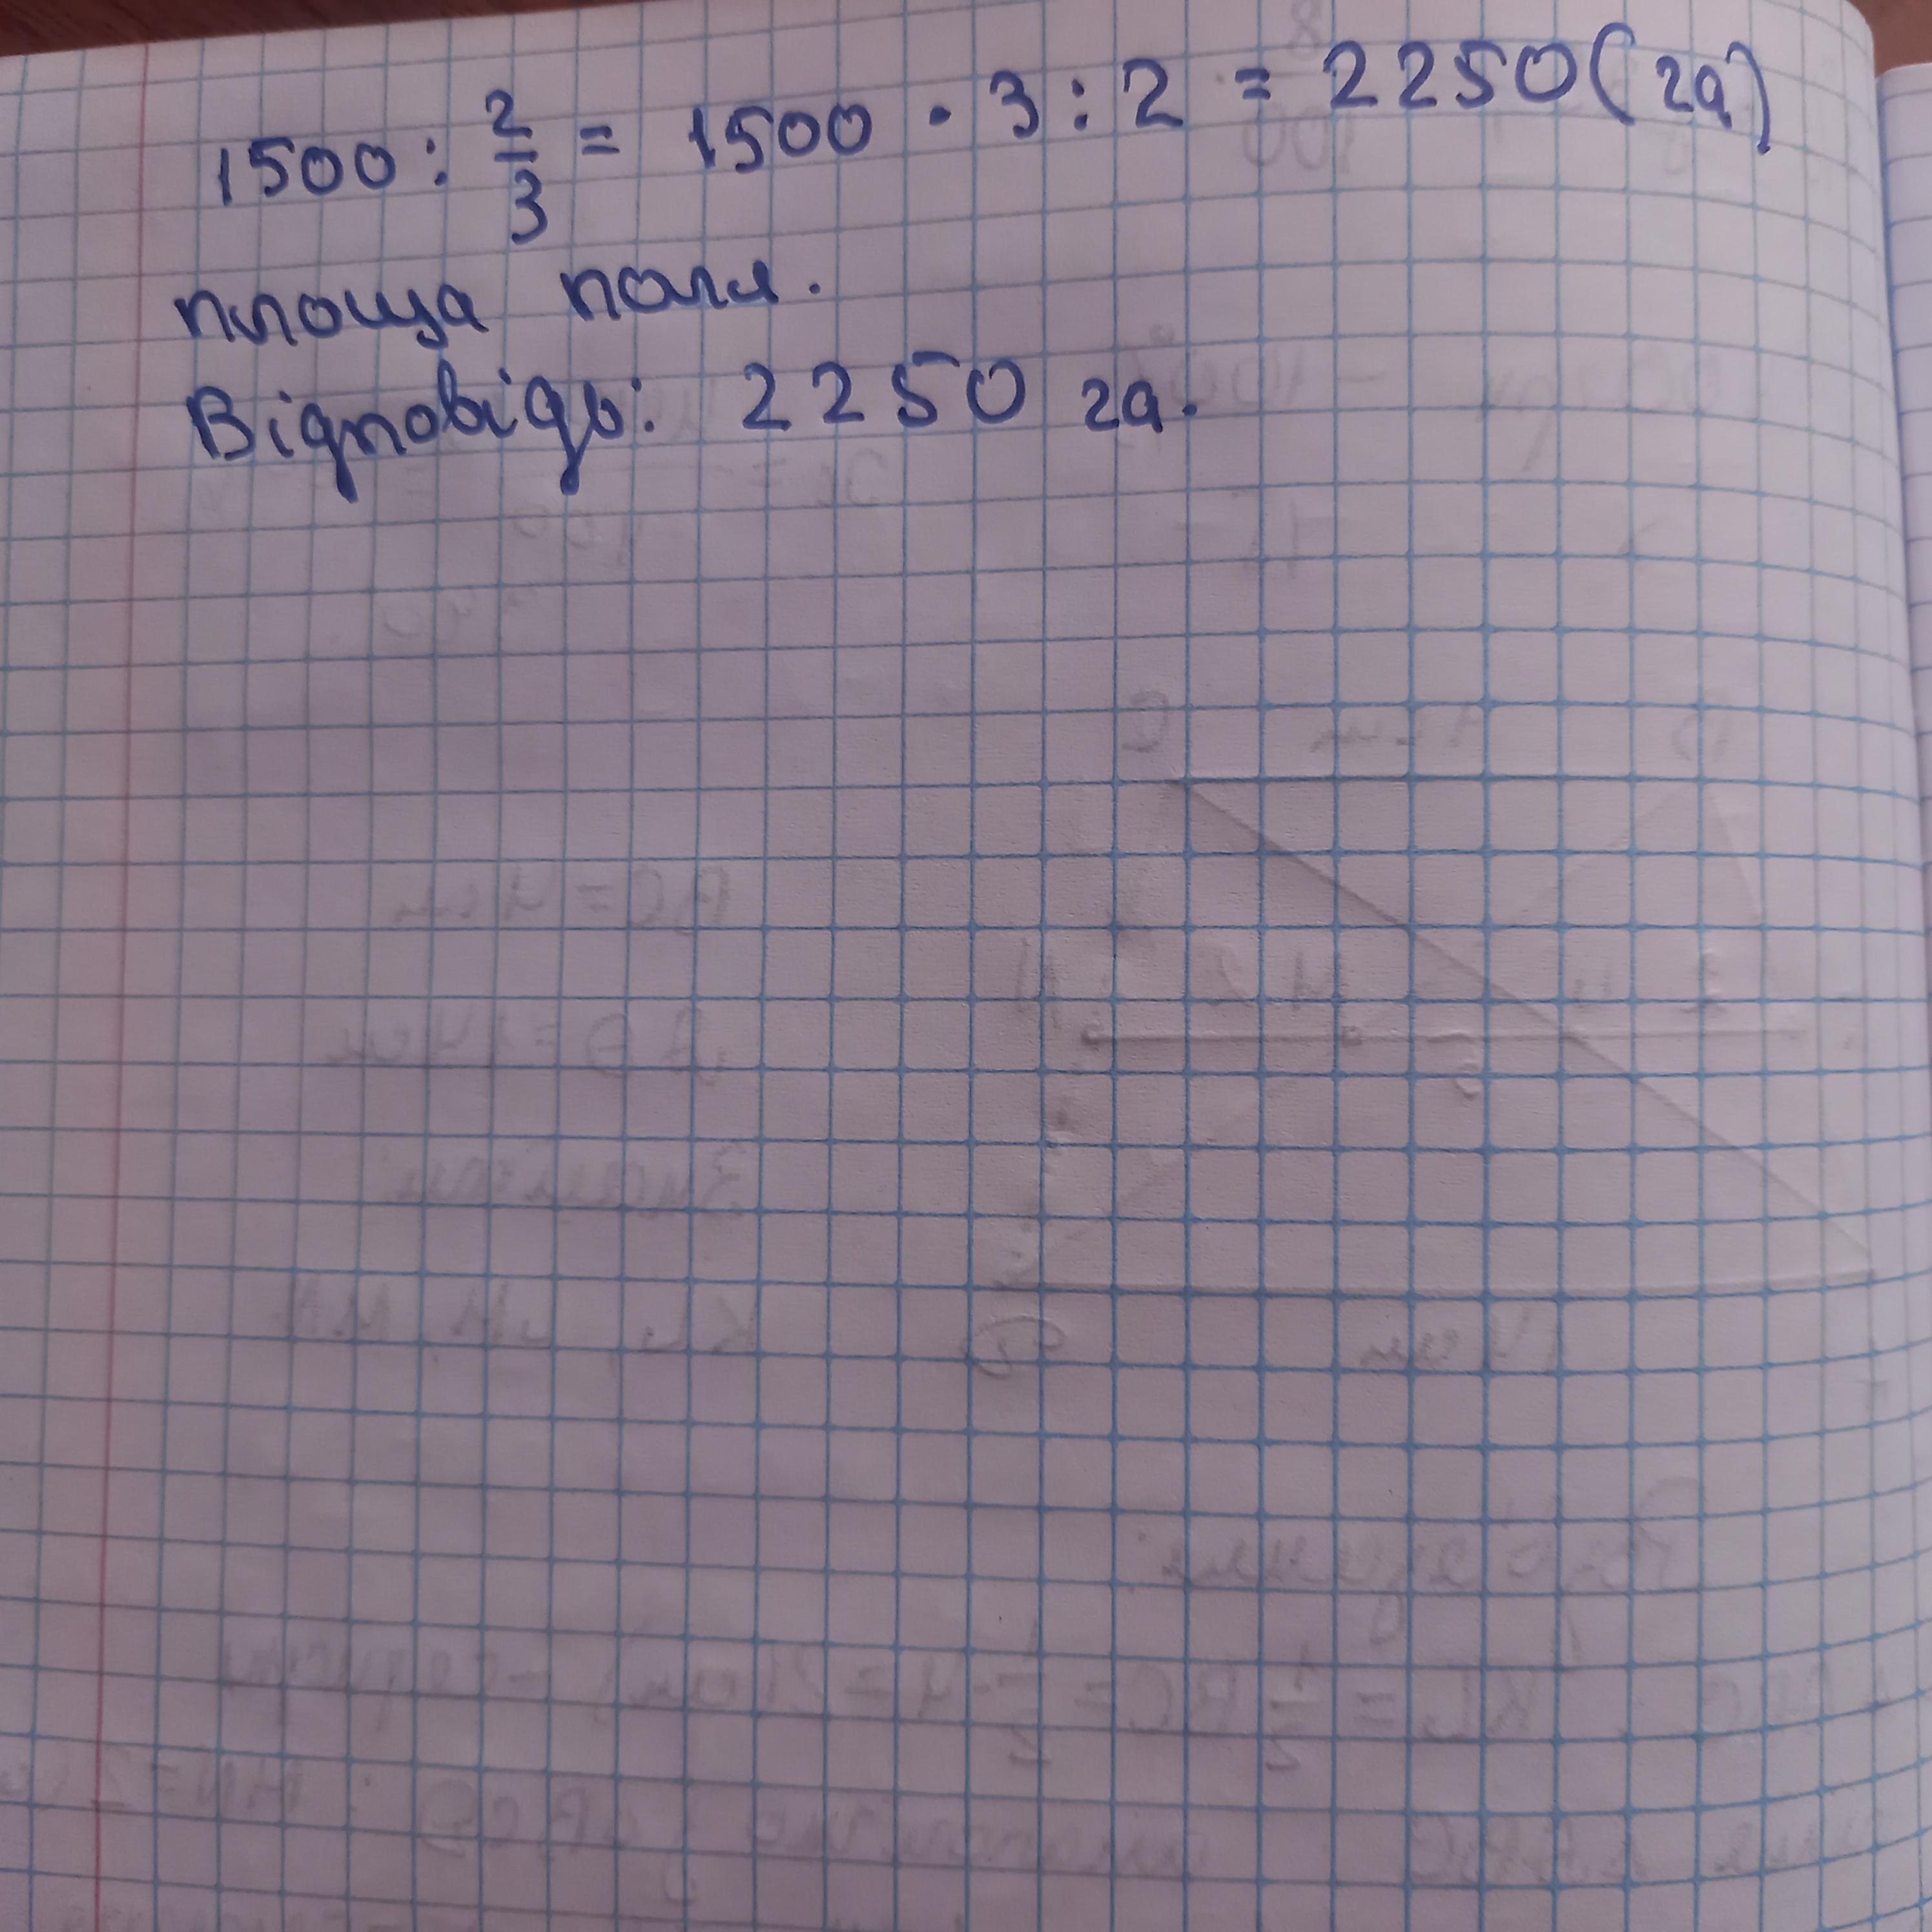 1500 : 2/3 = 1500 · 3 : 2 = 2250 (га)
площа поля.
Відповідь: 2250 га.